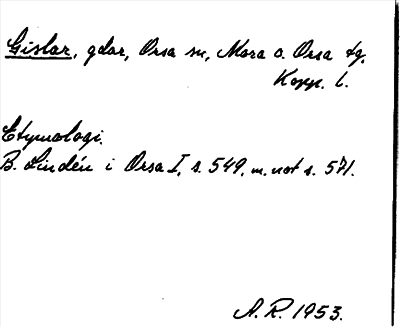 Gislar, gdar, Orsa sn, Mora o. Orsa tg.
Kopp. l.
Etymologi.
B. Lindén i Orsa I, s. 549, m. not s. 571.
A. R. 1953.